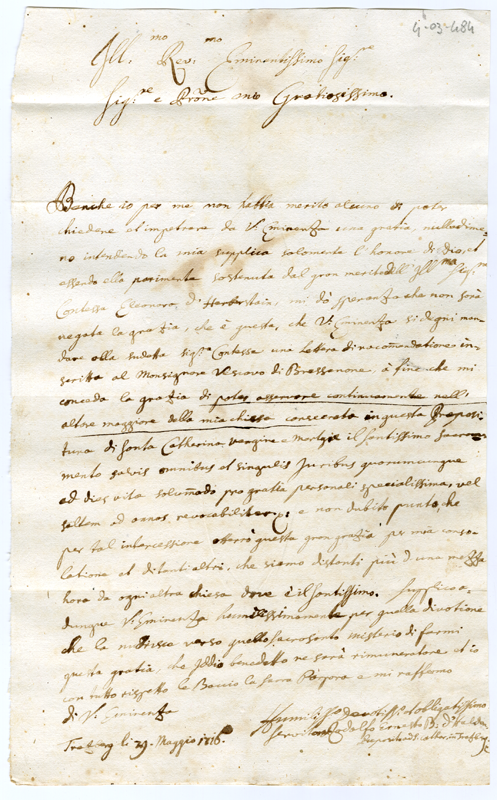 4-03-484
Ill:mo Rev:mo Eminentissimo Sig:re
Sig:re e Prone mio Gratiosissimo.
Benche io per me non habbia merito alcuno di poter
chiedere et impetrare da V: Eminenza una gratia, nulladime-
no intendendo la mia supplica solamente l'honore di Dio, et
essendo ella parimenta sostenuta dal gran merito dell' Ill:ma Sig:ra
Contessa Eleonora, d'Herberstain, mi dò speranza che non sarà
negata la grazia, che è questa, che V: Eminenza si degni man-
dare alla sudetta Sig:ra Contessa una lettera di racomendatione in-
scritta al Monsignore Vescovo di Bressanone, à fine che mi
conceda la grazia di poter asservare continuamente nell'
altare maggiore della mia chiesa consecrata in questa Preposi-
tura di Santa Catherina vergine e martyre il Santissimo Sacra-
mento salvis omnibus et singulis Juribus quorumcunque
ad dies vitæ solummodo pro gratia personali specialissima, vel
saltem ad annos revocabiliter; e non dubito punto, che
per tal intercessione otterò questa gran grazia per mia conso-
latione et di tanti altri, che siamo distanti più d'una mezza
hora da ogni altra chiesa dove è il Santissimo. Supplico a-
dunque V: Eminenza humilissimamente per quella divotione
che la nutrisce verso quello sacrosanto misterio di farmi
questa gratia, che Iddio benedetto ne sarà rimuneratore et io
con tutto rispetto le Baccio la Sacra Porpora e mi rassemo
di V: Eminenza
Humiliss:o devotiss:o obligatissimo
servitore Rodolfo
li 29. Maggio 1716